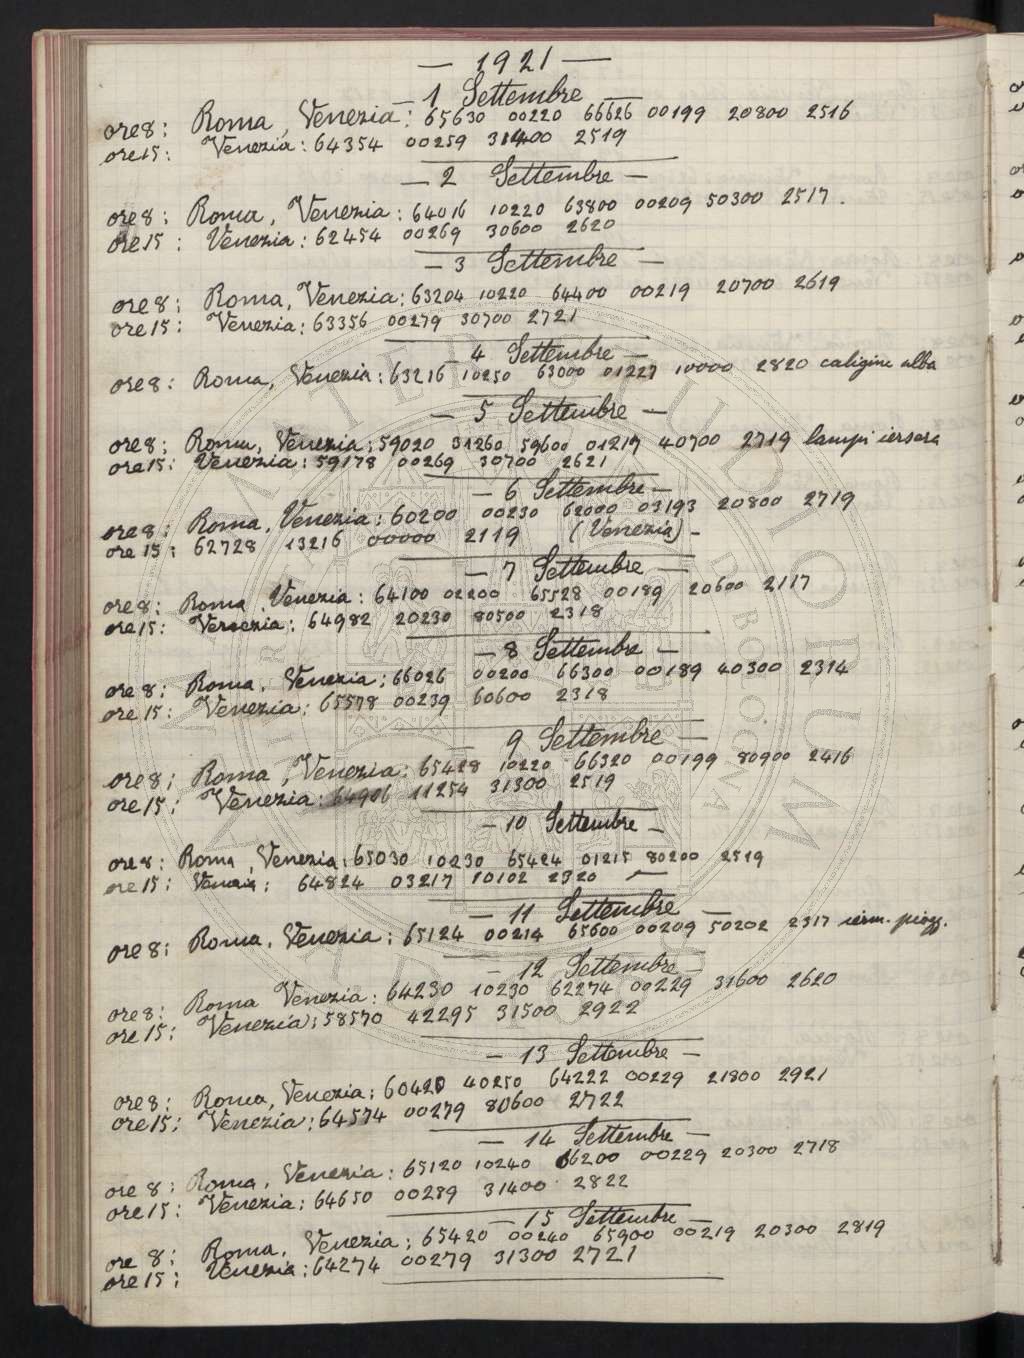 — 1921 —
— 1 Settembre —
ore 8: Roma, Venezia: 65630 00220 66626 00199 20800 2516
ore 15: Venezia: 64354 00259 31400 2519
— 2 Settembre —
ore 8: Roma, Venezia: 64016 10220 63800 00209 50300 2517.
ore 15: Venezia: 62454 00269 30600 2620
— 3 Settembre —
ore 8: Roma, Venezia: 63204 10220 64400 00219 20700 2619
ore 15: Venezia: 63356 00279 30700 2721
— 4 Settembre —
ore 8: Roma, Venezia: 63216 10250 63000 01227 10000 2820 caligine alba
— 5 Settembre —
ore 8: Roma, Venezia: 59020 31260 59600 01217 40700 2719 lampi iersera
ore 15: Venezia: 59178 00269 30700 2621
— 6 Settembre —
ore 8: Roma, Venezia: 60200 00230 62000 03193 20800 2719
ore 15: 62728 13216 00000 2119 (Venezia) -
— 7 Settembre —
ore 8: Roma, Venezia: 64100 02200 65528 00189 20600 2117
ore 15: Venezia: 64982 20230 80500 2318
— 8 Settembre —
ore 8: Roma, Venezia: 66026 00200 66300 00189 40300 2314
ore 15: Venezia: 65578 00239 60600 2318
— 9 Settembre —
ore 8: Roma, Venezia: 65428 10220 66320 00199 80900 2416
ore 15: Venezia: 64906 11254 31300 2519
— 10 Settembre —
ore 8: Roma, Venezia: 65030 10230 65424 01215 80200 2519
ore 15: Venezia: 64824 03217 10102 2320 —
— 11 Settembre —
ore 8: Roma, Venezia: 65124 00214 65600 00209 50202 2317 piogg.
— 12 Settembre —
ore 8: Roma Venezia: 64230 10230 62274 00229 31600 2620
ore 15: Venezia: 58570 42295 31500 2922
— 13 Settembre —
ore 8: Roma, Venezia: 60420 40250 64222 00229 21800 2921
ore 15: Venezia: 64574 00279 80600 2722
— 14 Settembre —
ore 8: Roma, Venezia: 65120 10240 66200 00229 20300 2718
ore 15: Venezia: 64650 00289 31400 2822
— 15 Settembre —
ore 8: Roma, Venezia: 65420 00240 65900 00219 20300 2819
ore 15: Venezia: 64274 00279 31300 2721